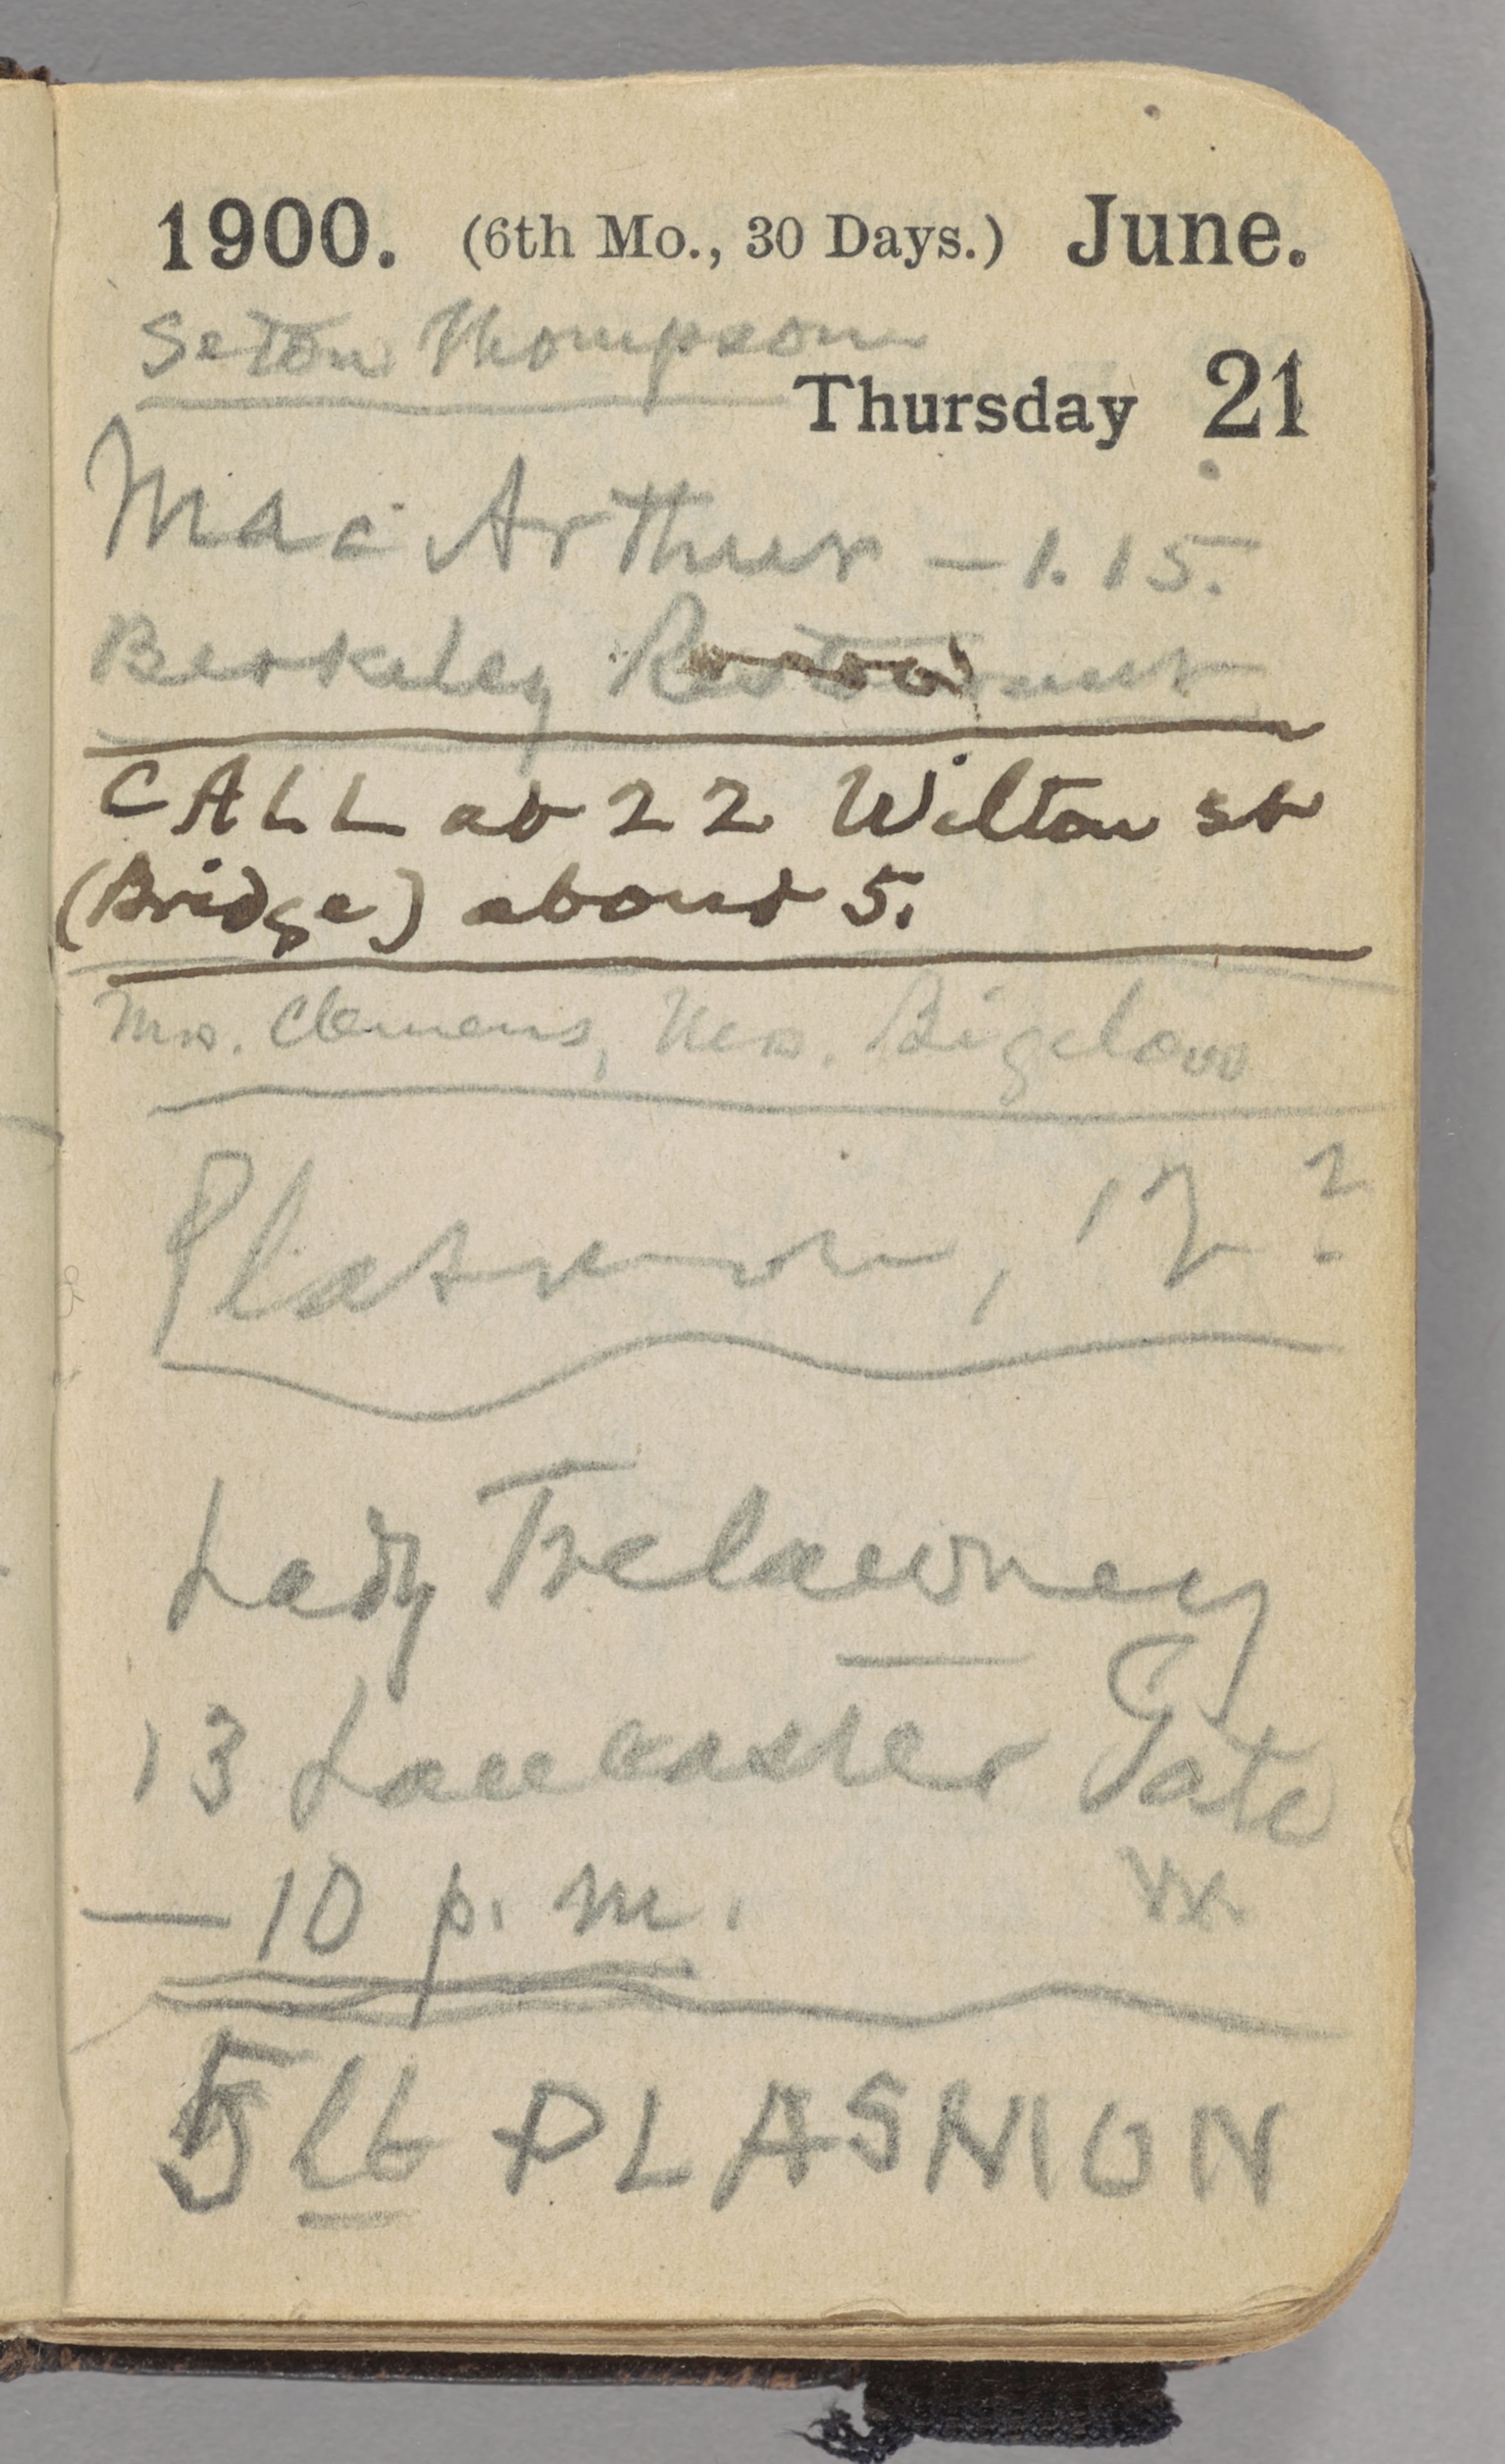 1900. (6th Mo., 30 Days.) June.
Seton Thompson
Thursday 21
MacArthur — 1.15.
Berkeley Restaurant
CALL at 22 Wilton st
(Bridge) about 5.
Mrs. Clemens, Mrs. Bigelow
Plasmon, 12?
Lady Trelawney
13 Lancaster Gate
— 10 p. m.
5 lb PLASMON